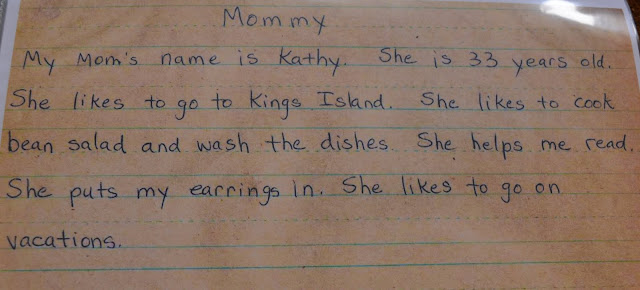 Mommy
My Mom's name is Kathy. She is 33 years old.
She likes to go to Kings Island. She likes to cook
bean salad and wash the dishes. She helps me read.
She puts my earrings in. She likes to go on
vacations.